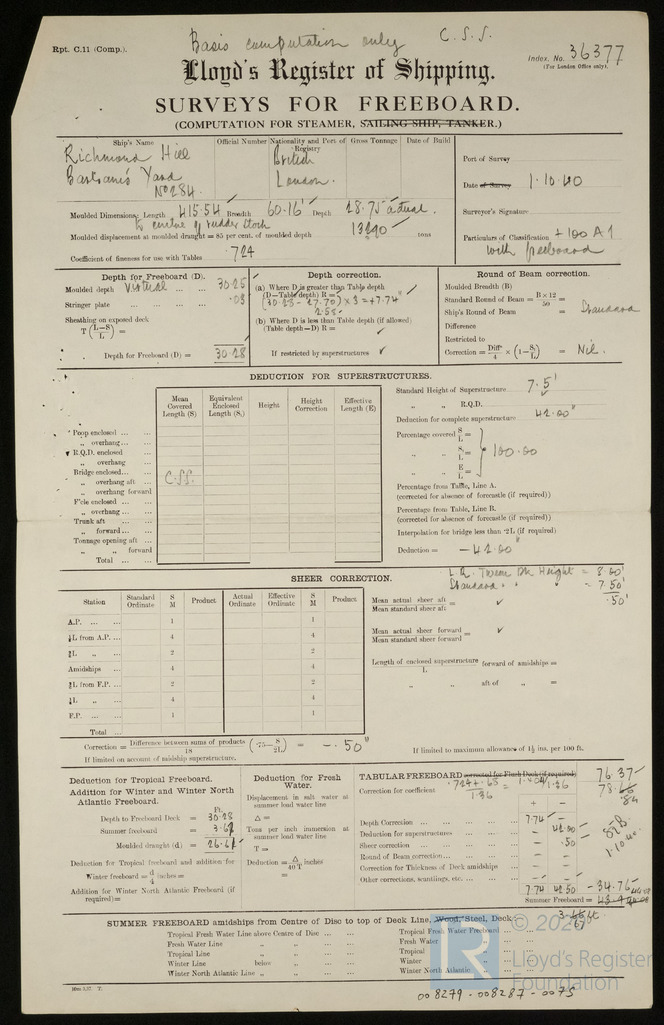 Basis computation only C.S.S.
Rpt. C.11 (Comp.).
Index. No. 36377
(For London Office only).
Lloyd's Register of Shipping.
SURVEYS FOR FREEBOARD.
(COMPUTATION FOR STEAMER, SAILING SHIP, TANKER.)
Ship's Name Official Number Nationality and Port of Registry Gross Tonnage Date of Build
Richmond Hill British
Bartram's Yard London.
No 284.
Port of Survey
Date of Survey 1.10.40
Surveyor's Signature
Particulars of Classification +100 A1
with freeboard
Moulded Dimensions: Length 415.54 Breadth 60.16' Depth 28.75 actual.
to centre of rudder stock
Moulded displacement at moulded draught = 85 per cent. of moulded depth 13290 tons
Coefficient of fineness for use with Tables .724
Depth for Freeboard (D).
Moulded depth Virtual ... ... 30.25
Stringer plate ... ... ... .03
Sheathing on exposed deck
T (L-S/L) =
Depth for Freeboard (D) = 30.28
Depth correction.
(a) Where D is greater than Table depth
(D—Table depth) R =
(30.28 - 27.70) × 3 = +7.74"
2.58
(b) Where D is less than Table depth (if allowed)
(Table depth—D) R =
If restricted by superstructures
Round of Beam correction.
Moulded Breadth (B)
Standard Round of Beam = B × 12/50 =
Ship's Round of Beam = Standard
Difference
Restricted to
Correction = Diff/4 × (1 - S₁/L) = Nil.
DEDUCTION FOR SUPERSTRUCTURES.
Mean Covered Length (S) Equivalent Enclosed Length (S₁) Height Height Correction Effective Length (E)
Poop enclosed ... ...
„ overhang ... ...
R.Q.D. enclosed ...
„ overhang
Bridge enclosed ... ... C.S.S.
„ overhang aft ...
„ overhang forward
F'cle enclosed ... ...
„ overhang ... ...
Trunk aft ...
„ forward ... ...
Tonnage opening aft ...
„ „ forward
Total ... ...
Standard Height of Superstructure 7.5'
„ „ R.Q.D.
Deduction for complete superstructure 42.00"
Percentage covered S/L =
„ „ S₁/L = 100.00
„ „ E/L =
Percentage from Table, Line A.
(corrected for absence of forecastle (if required))
Percentage from Table, Line B.
(corrected for absence of forecastle (if required))
Interpolation for bridge less than ·2L (if required)
Deduction = -42.00"
SHEER CORRECTION.
Dk Height = 8.00'
Standard „ „ = 7.50'
.50'
Station Standard Ordinate S M Product Actual Ordinate Effective Ordinate S M Product
A.P. ... ... 1 1
⅙L from A.P. ... 4 4
⅓L „ ... 2 2
Amidships ... 4 4
⅓L from F.P. ... 2 2
⅙L „ ... 4 4
F.P. ... ... 1 1
Total ...
Mean actual sheer aft
Mean standard sheer aft =
Mean actual sheer forward
Mean standard sheer forward =
Length of enclosed superstructure/L forward of amidships =
„ „ aft of „ =
Correction = Difference between sums of products/18 (·75 - S/2L) = -.50"
If limited on account of midship superstructure.
If limited to maximum allowance of 1½ ins. per 100 ft.
Deduction for Tropical Freeboard.
Addition for Winter and Winter North Atlantic Freeboard.
Ft.
Depth to Freeboard Deck = 30.28
Summer freeboard = 3.67
Moulded draught (d) = 26.61
Deduction for Tropical freeboard and addition for
Winter freeboard = d/4 inches =
Addition for Winter North Atlantic Freeboard (if required) =
Deduction for Fresh Water.
Displacement in salt water at summer load water line
Δ =
Tons per inch immersion at summer load water line
T =
Deduction = Δ/40 T inches
=
TABULAR FREEBOARD corrected for Flush Deck (if required) 76.37
Correction for coefficient .724 + .68/1.36 = 1.404/1.36
+ -
Depth Correction ... 7.74 -
Deduction for superstructures ... - 42.00
Sheer correction ... - .50
Round of Beam correction ... - -
Correction for Thickness of Deck amidships - -
Other corrections, scantlings, etc. ... - -
7.74 42.50 -34.76
Summer Freeboard =
1.10.40
SUMMER FREEBOARD amidships from Centre of Disc to top of Deck Line, Wood, Steel, Deck
Tropical Fresh Water Line above Centre of Disc ... ...
Fresh Water Line „ „ ... ...
Tropical Line „ „ ... ...
Winter Line below „ ... ...
Winter North Atlantic Line „ „ ... ...
Tropical Fresh Water Freeboard ...
Fresh Water „
Tropical „
Winter „
Winter North Atlantic „
© 2020
Lloyd's Register
Foundation
008279-008287-0075